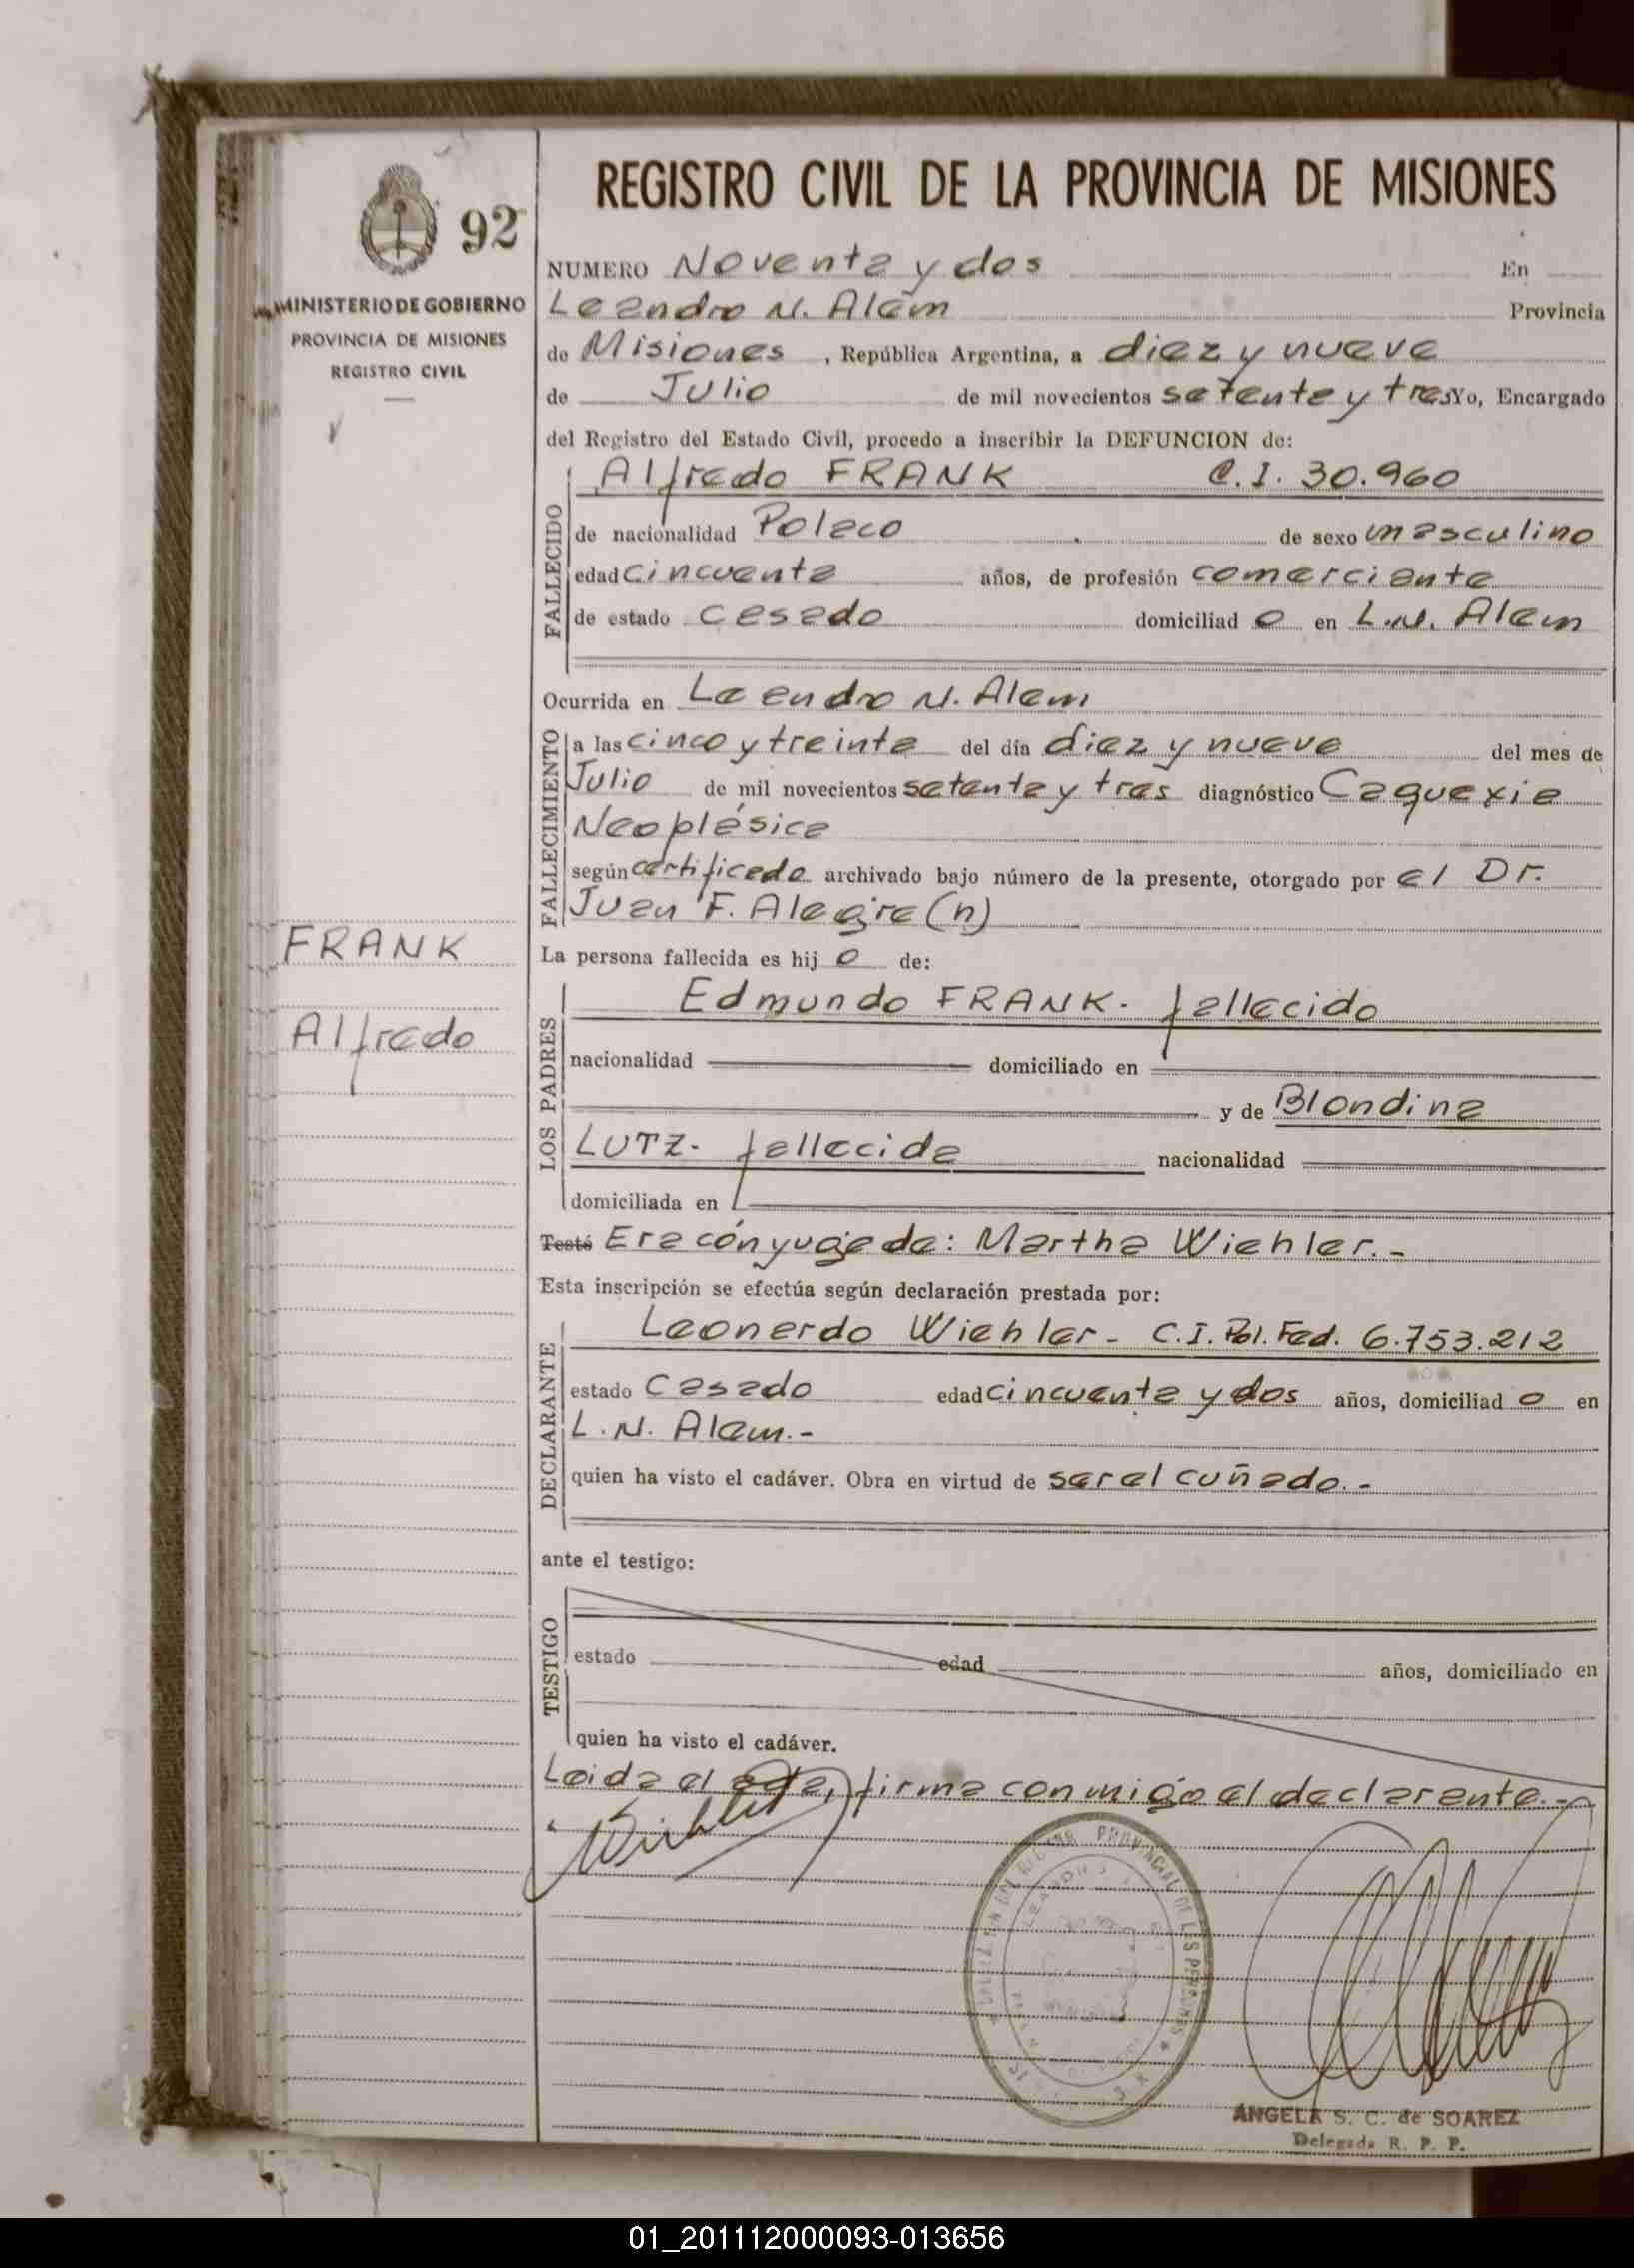 REGISTRO CIVIL DE LA PROVINCIA DE MISIONES
92
MINISTERIO DE GOBIERNO
PROVINCIA DE MISIONES
REGISTRO CIVIL
NUMERO Noventa y dos En
Leandro N. Alem Provincia
de Misiones, República Argentina, a diez y nueve
de Julio de mil novecientos setenta y tres Yo, Encargado
del Registro del Estado Civil, procedo a inscribir la DEFUNCION de:
FALLECIDO
Alfredo FRANK C.I. 30.960
de nacionalidad Polaco de sexo masculino
edad cincuenta años, de profesión comerciante
de estado casado domiciliad o en L.N. Alem
Ocurrida en Leandro N. Alem
FALLECIMIENTO
a las cinco y treinta del día diez y nueve del mes de
Julio de mil novecientos setenta y tres diagnóstico Caquexia
Neoplásica
según certificado archivado bajo número de la presente, otorgado por el Dr.
Juan F. Alegre (h)
FRANK
Alfredo
La persona fallecida es hij o de:
LOS PADRES
Edmundo FRANK- fallecido
nacionalidad domiciliado en
y de Blondina
LUTZ- fallecida nacionalidad
domiciliada en
Testó Era cónyuge de: Martha Wiehler.-
Esta inscripción se efectúa según declaración prestada por:
DECLARANTE
Leonardo Wiehler- C.I. Pol. Fed. 6.753.212
estado Casado edad cincuenta y dos años, domiciliad o en
L.N. Alem.-
quien ha visto el cadáver. Obra en virtud de ser el cuñado.-
ante el testigo:
TESTIGO
estado edad años, domiciliado en
quien ha visto el cadáver.
Leida el acta, firma conmigo el declarante.-
Wiehler
ANGELA S. C. de SOAREZ
Delegada R. P. P.
01_201112000093-013656